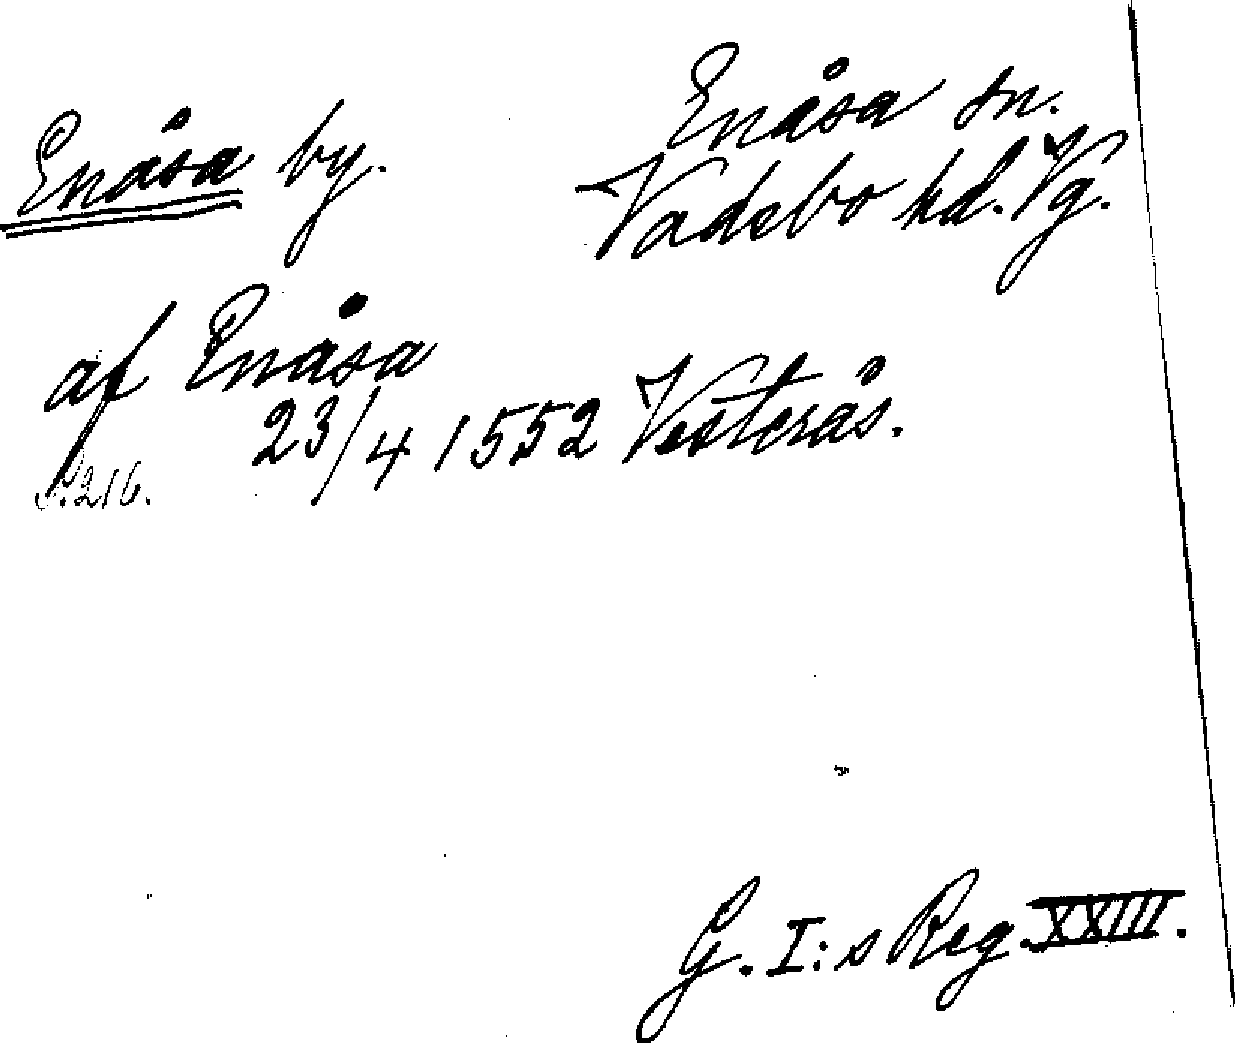 Enåsa by.
Enåsa sn.
Vadsbo hd. Vg.
af Enåsa
23/4 1552 Vesterås.
S. 216.
G. I:s Reg. XXIII.